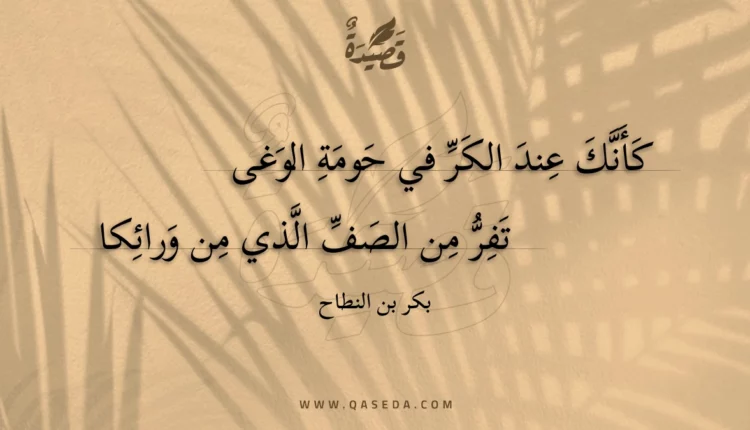 قَصِيدَةٌ
كَأَنَّكَ عِندَ الكَرِّ في حَومَةِ الوَغى
تَفِرُّ مِن الصَفِّ الَّذي مِن وَرائِكا
بكر بن النطاح
WWW.QASEDA.COM